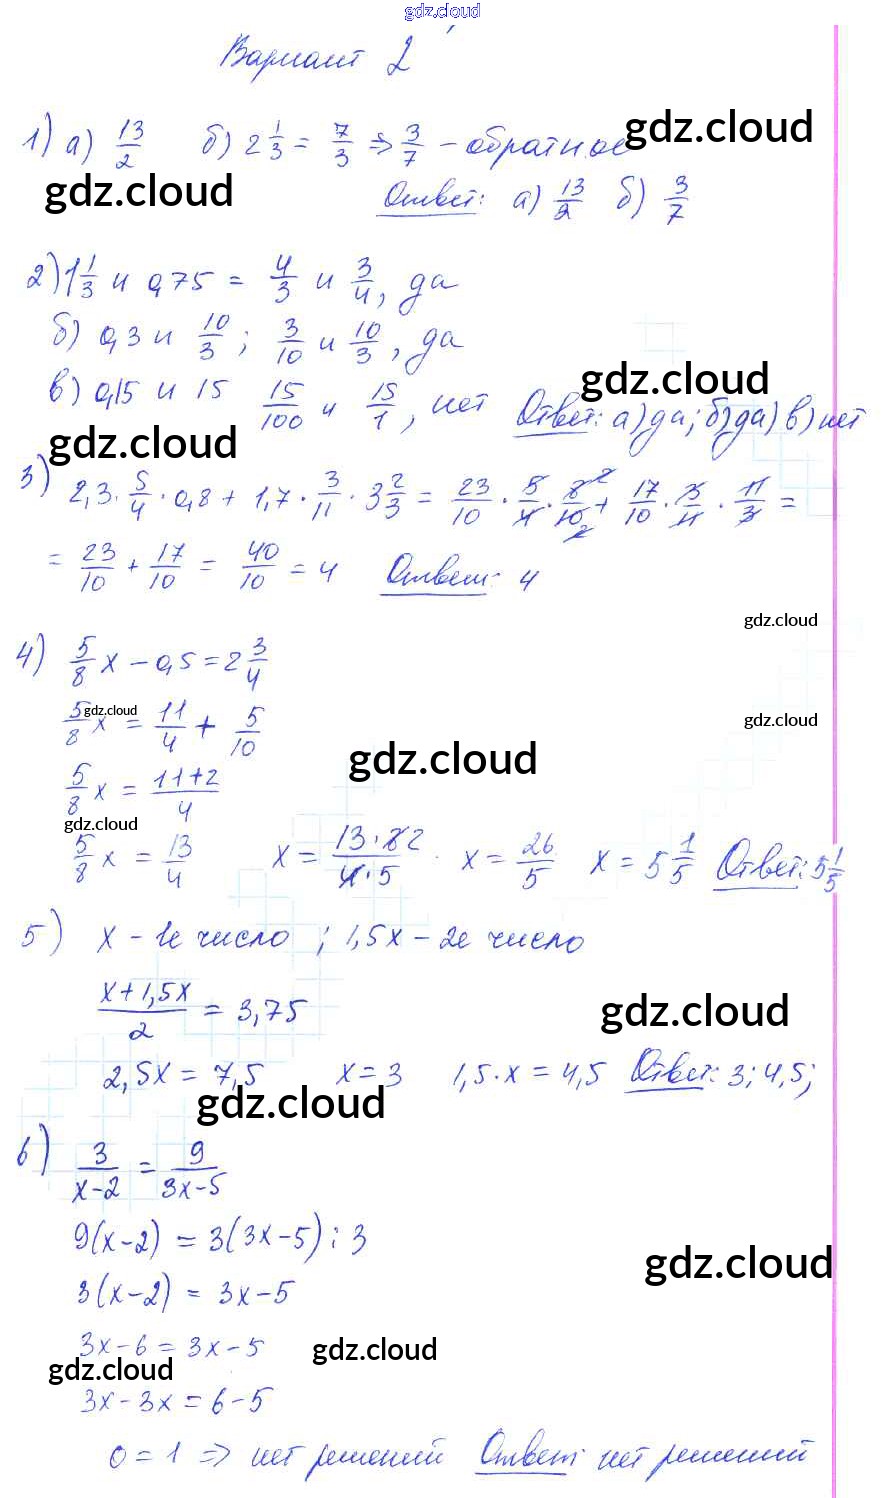 gdz.cloud
Вариант 2
1) а) 13/2 б) 2 1/3 = 7/3 ⇒ 3/7 – обратное
gdz.cloud
gdz.cloud
Ответ: а) 13/2 б) 3/7
2) 1 1/3 и 0,75 = 4/3 и 3/4, да
б) 0,3 и 10/3; 3/10 и 10/3, да
gdz.cloud
в) 0,15 и 15 15/100 и 15/1, нет Ответ: а) да; б) да) в) нет
gdz.cloud
3) 2,3 · 5/4 · 0,8 + 1,7 · 3/11 · 3 2/3 = 23/10 · 5/4 · 8 2/10 2 + 17/10 · 3/11 · 11/3 =
= 23/10 + 17/10 = 40/10 = 4 Ответ: 4
gdz.cloud
4) 5/8 x – 0,5 = 2 3/4
gdz.cloud
5/8 x = 11/4 + 5/10
gdz.cloud
gdz.cloud
5/8 x = (11+2)/4
gdz.cloud
5/8 x = 13/4 x = (13 · 8 2)/(4 · 5) · x = 26/5 x = 5 1/5 Ответ: 5 1/5
5) x – 1е число ; 1,5x – 2е число
(x + 1,5x)/2 = 3,75
gdz.cloud
2,5x = 7,5 x = 3 1,5 · x = 4,5 Ответ: 3; 4,5;
gdz.cloud
6) 3/(x–2) = 9/(3x–5)
9(x–2) = 3(3x–5) : 3
gdz.cloud
3(x–2) = 3x–5
3x–6 = 3x–5
gdz.cloud
gdz.cloud
3x–3x = 6–5
0 = 1 ⇒ нет решений Ответ: нет решений